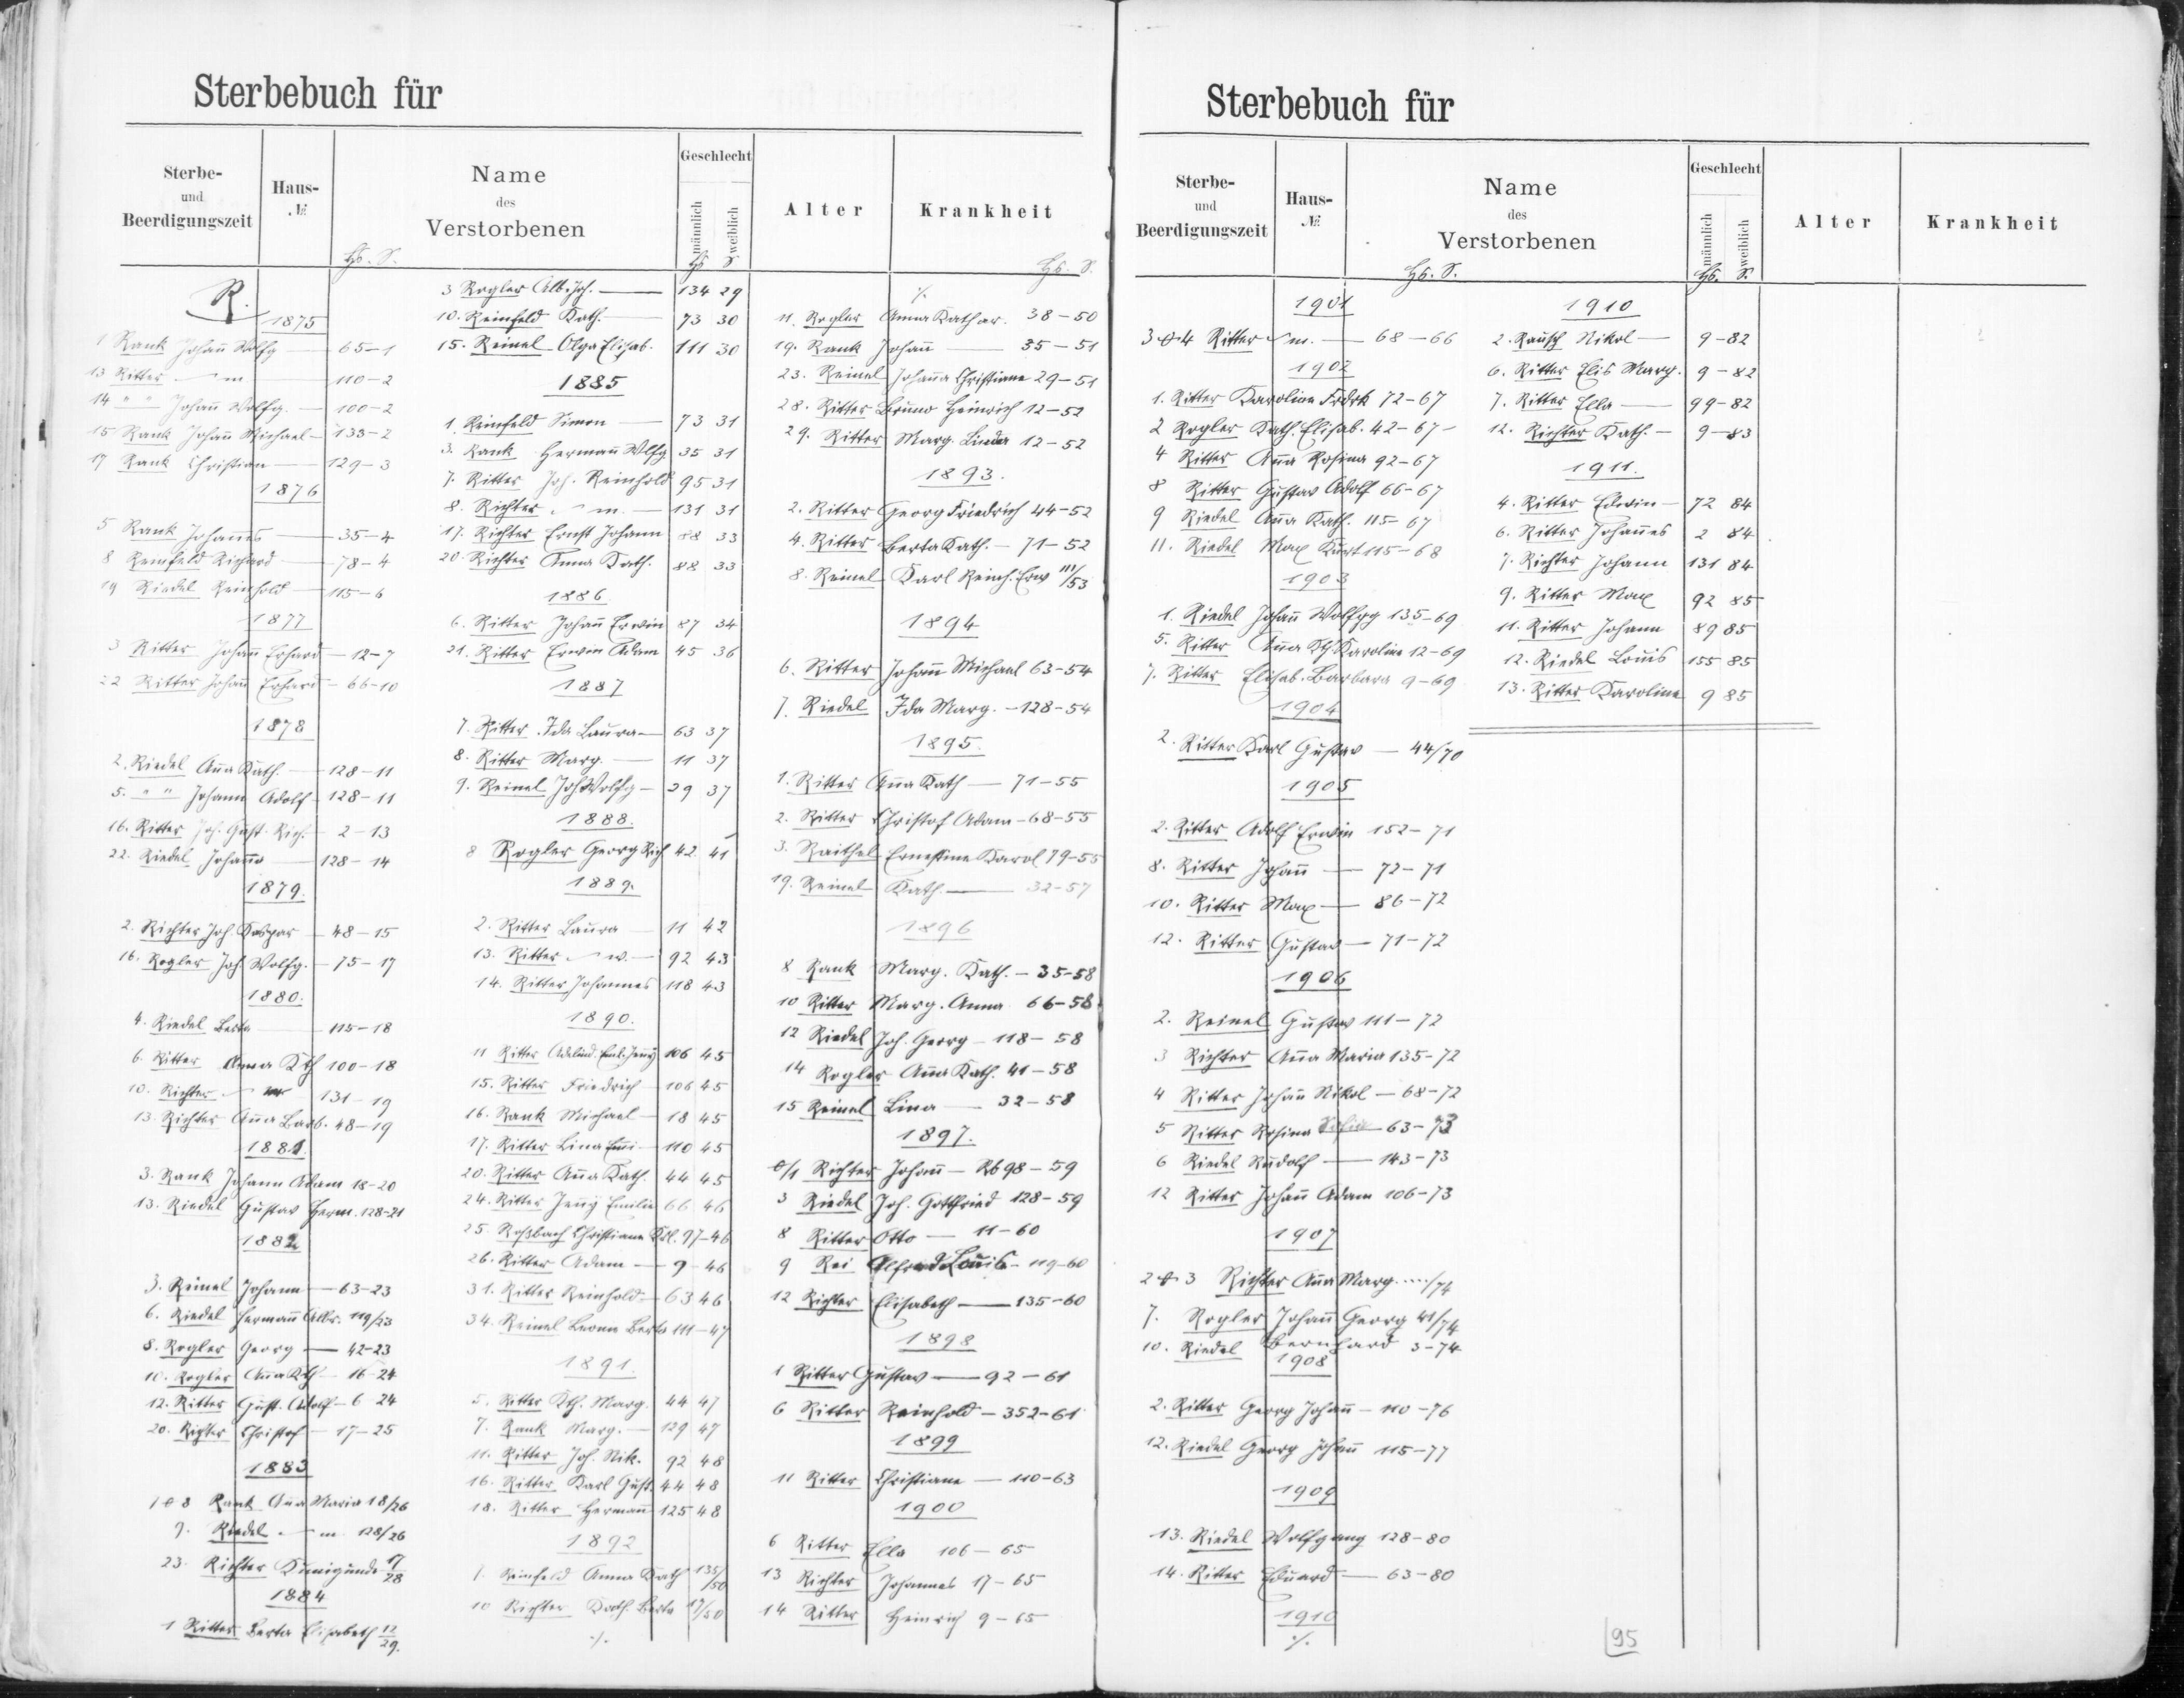 Sterbebuch für
Sterbe-
und
Beerdigungszeit
Haus-
№
Name
des
Verstorbenen
Geschlecht
männlich
weiblich
Alter
Krankheit
Hs. S.
Hs. S.
Hs. S.
R.
1875
1 Rank Johañ Wolfg — 65-1
13 Ritter — m — 110-2
14 " " Johañ Wolfg. — 100-2
15 Rank Johañ Michael — 133-2
17 Rank Christian — 129-3
1876
5 Rank Johañes — 35-4
8 Reinfeld Richard — 78-4
19 Riedel Reinhold — 115-6
1877
3 Ritter Johañ Erhard — 12-7
22 Ritter Johañ Erhard — 66-10
1878
2. Riedel Aña Kath. — 128-11
5. " " Johann Adolf — 128-11
16. Ritter Joh. Gust. Rich. — 2-13
22. Riedel Johañ — 128-14
1879.
2. Richter Joh. Kaspar — 48-15
16. Rogler Joh. Wolfg. — 75-17
1880.
4. Riedel Berta — 115-18
6. Ritter Anna Kth 100-18
10. Richter — 131-19
13. Richter Aña Barb. 48-19
1881.
3. Rank Johann Adam 18-20
13. Riedel Gustav Herm. 128-21
1882
3. Reinel Johann — 63-23
6. Riedel Hermañ Albr. 119/23
8. Rogler Georg — 42-23
10. Rogler Aña Kth — 16-24
12. Ritter Gust. Adolf — 6 24
20. Richter Christof — 17-25
1883
1 & 8 Rank Aña Maria 18/26
9. Riedel — m 128/26
23. Richter Kunigunde 17/28
1884
1 Ritter Berta Elisabeth 12/29.
3 Rogler Alb. Joh. — 134 29
10. Reinfeld Kath. — 73 30
15. Reinel Olga Elisab. 111 30
1885
1. Reinfeld Simon — 73 31
3. Rank Hermañ Wlfg 35 31
7. Ritter Joh. Reinhold 95 31
8. Richter — m. — 131 31
17. Richter Ernst Johann 88 33
20. Richter Anna Kath. 88 33
1886
6. Ritter Johañ Erwin 87 34
21. Ritter Erwin Adam 45 36
1887
7. Ritter Ida Laura — 63 37
8. Ritter Marg. — 11 37
9. Reinel Joh Wolfg — 29 37
1888.
8 Rogler Georg Rich 42 41
1889.
2. Ritter Laura — 11 42
13. Ritter — w. — 92 43
14. Ritter Johannes 118 43
1890.
11 Ritter Adelind. Eml. Jeñy 106 45
15. Ritter Friedrich — 106 45
16. Rank Michael — 18 45
17. Ritter Lina Emi — 110 45
20. Ritter Aña Kath. 44 45
24. Ritter Jeñy Emilie 66 46
25. Roßbach Christiane 97-46
26. Ritter Adam — 9 - 46
31. Ritter Reinhold — 63 46
34. Reinel Leonu Berta 111-47
1891.
5. Ritter Kth. Marg. 44 47
7. Rank Marg. — 129 47
11. Ritter Joh. Nik. 92 48
16. Ritter Karl Gust. 44 48
18. Ritter Hermañ 125 48
1892
1. Reinfeld Anna Kath 135/50
10 Richter Kath. Berta 17/50
./.
./.
11. Rogler Anna Kathar. 38-50
19. Rank Johañ — 35-51
23. Reinel Johaña Christiane 29-51
28. Ritter Bruno Heinrich 12-52
29. Ritter Marg. Linda 12-52
1893.
2. Ritter Georg Friedrich 44-52
4. Ritter Berta Kath. — 71-52
8. Reinel Karl Reinh. Erw 111/53
1894
6. Ritter Johañ Michael 63-54
7. Riedel Ida Marg. — 128-54
1895.
1. Ritter Aña Kath — 71-55
2. Ritter Christof Adam — 68-55
3. Raithel Ernestine Karol 79-55
19. Reinel Kath. — 32-57
1896
8 Rank Marg. Kath. — 35-58
10 Ritter Marg. Anna 66-58
12 Riedel Joh. Georg — 118-58
14 Rogler Aña Kath. 41-58
15 Reinel Lina — 32-58
1897.
Richter Johañ — 98-59
3 Riedel Joh. Gottfried 128-59
8 Ritter Otto — 11-60
9 Rei Alfred Louis — 119-60
12 Richter Elisabeth — 135-60
1898
1 Ritter Gustav — 92-61
6 Ritter Reinhold — 352-61
1899
11 Ritter Christiane — 110-63
1900
6 Ritter Ella 106-65
13 Richter Johannes 17-65
14 Ritter Heinrich 9-65
Sterbebuch für
Sterbe-
und
Beerdigungszeit
Haus-
№
Name
des
Verstorbenen
Geschlecht
männlich
weiblich
Alter
Krankheit
Hs. S.
Hs. S.
1901
3 & 4 Ritter — m. — 68-66
1902
1. Ritter Karoline Frdrk 72-67
2 Rogler Kath. Elisab. 42-67
4 Ritter Aña Rosina 92-67
8 Ritter Gustav Adolf 66-67
9 Riedel Aña Kath. 115-67
11. Riedel Max Kurt 115-68
1903
1. Riedel Johañ Wolfgg 135-69
5. Ritter Aña Kth Karoline 12-69
7. Ritter Elisab. Barbara 9-69
1904
2. Ritter Karl Gustav — 44/70
1905
2. Ritter Adolf Erwin 152-71
8. Ritter Johañ — 72-71
10. Ritter Max — 86-72
12. Ritter Gustav — 71-72
1906
2. Reinel Gustav 111-72
3 Richter Aña Maria 135-72
4 Ritter Johañ Nikol — 68-72
5 Ritter Rosina Sofie 63-73
6 Riedel Rudolf — 143-73
12 Ritter Johañ Adam 106-73
1907
2 & 3 Richter Aña Marg. ..../74
7. Rogler Johañ Georg 41/74
10. Riedel Bernhard 3-74
1908
2. Ritter Georg Johañ — 110-76
12. Riedel Georg Johañ 115-77
1909
13. Riedel Wolfgang 128-80
14. Ritter Eduard — 63-80
1910
./.
1910
2. Rausch Nikol — 9-82
6. Ritter Elis Marg. 9-82
7. Ritter Ella — 99-82
12. Richter Kath. — 9-83
1911.
4. Ritter Edwin — 72 84
6. Ritter Johañes 2 84
7. Richter Johann 131 84
9. Ritter Max 92 85
11. Ritter Johann 89 85
12. Riedel Louis 155 85
13. Ritter Karoline 9 85
95